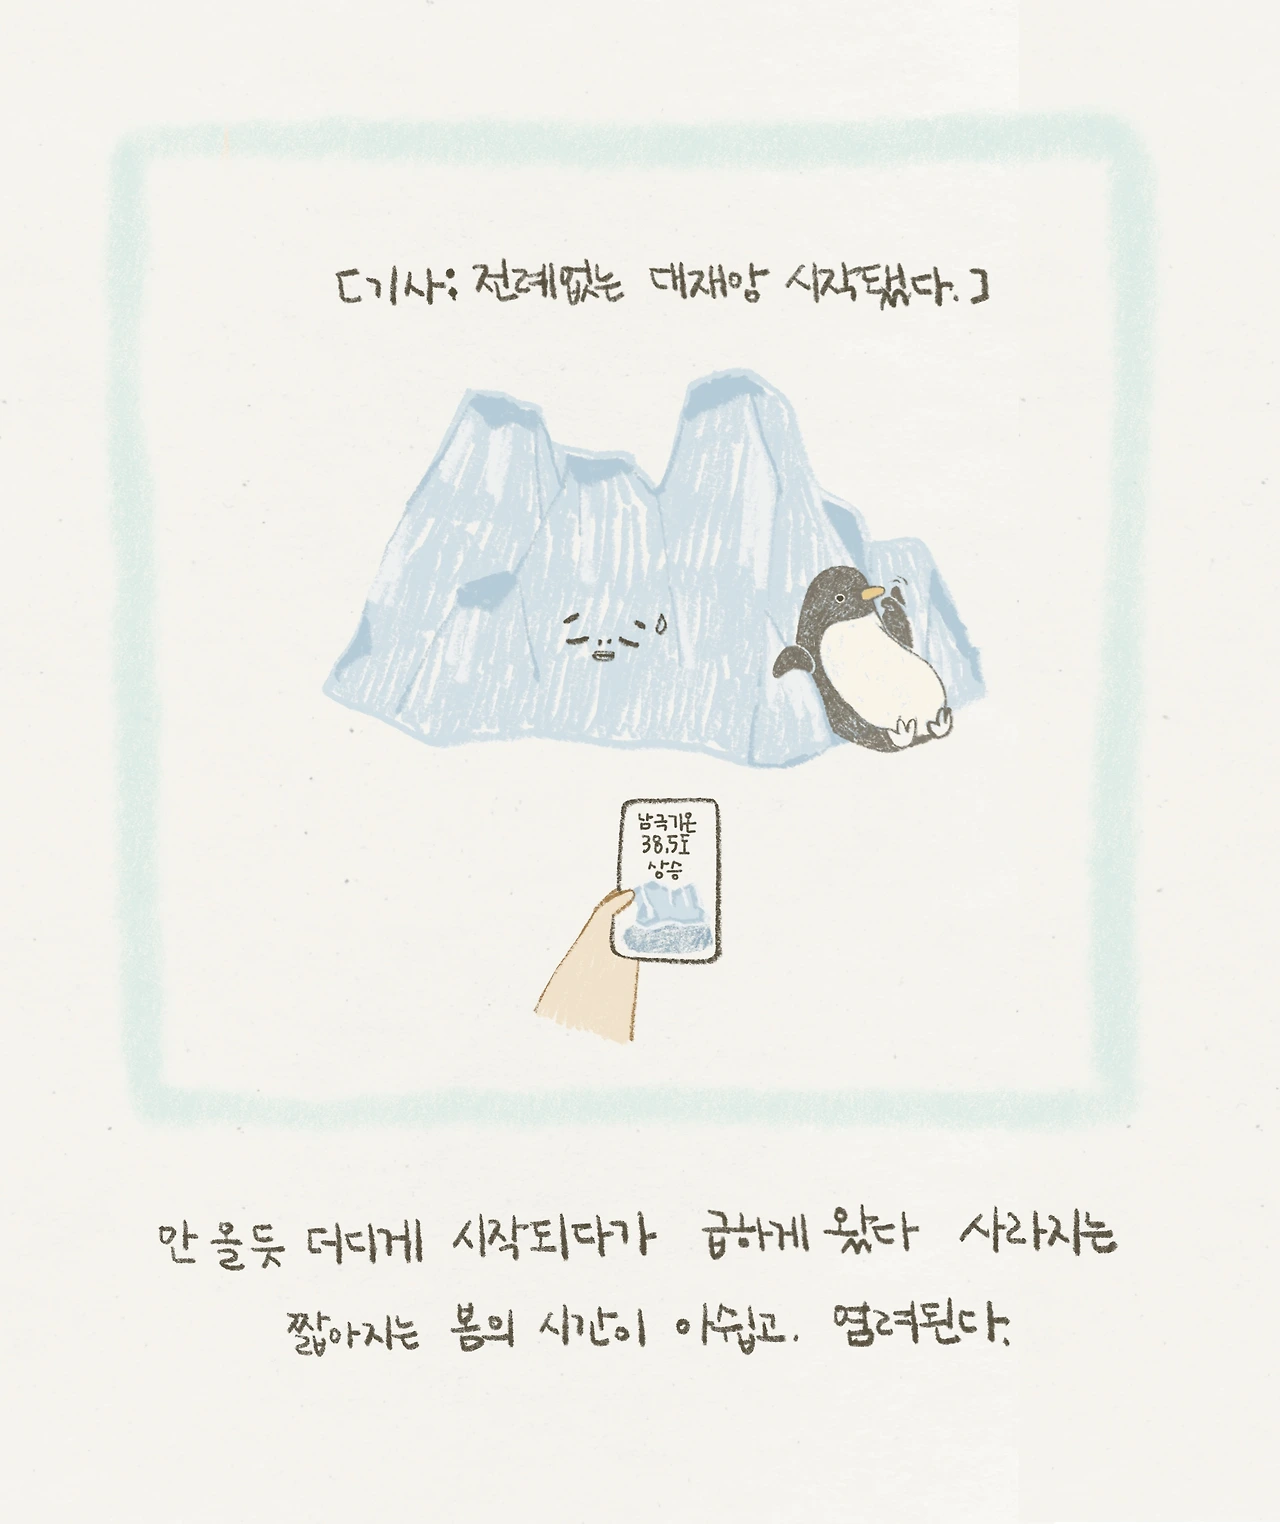 [기사; 전례없는 대재앙 시작됐다.]
남극기온
38.5도
상승
안 올듯 더디게 시작되다가 급하게 왔다 사라지는
짧아지는 봄의 시간이 아쉽고, 염려된다.